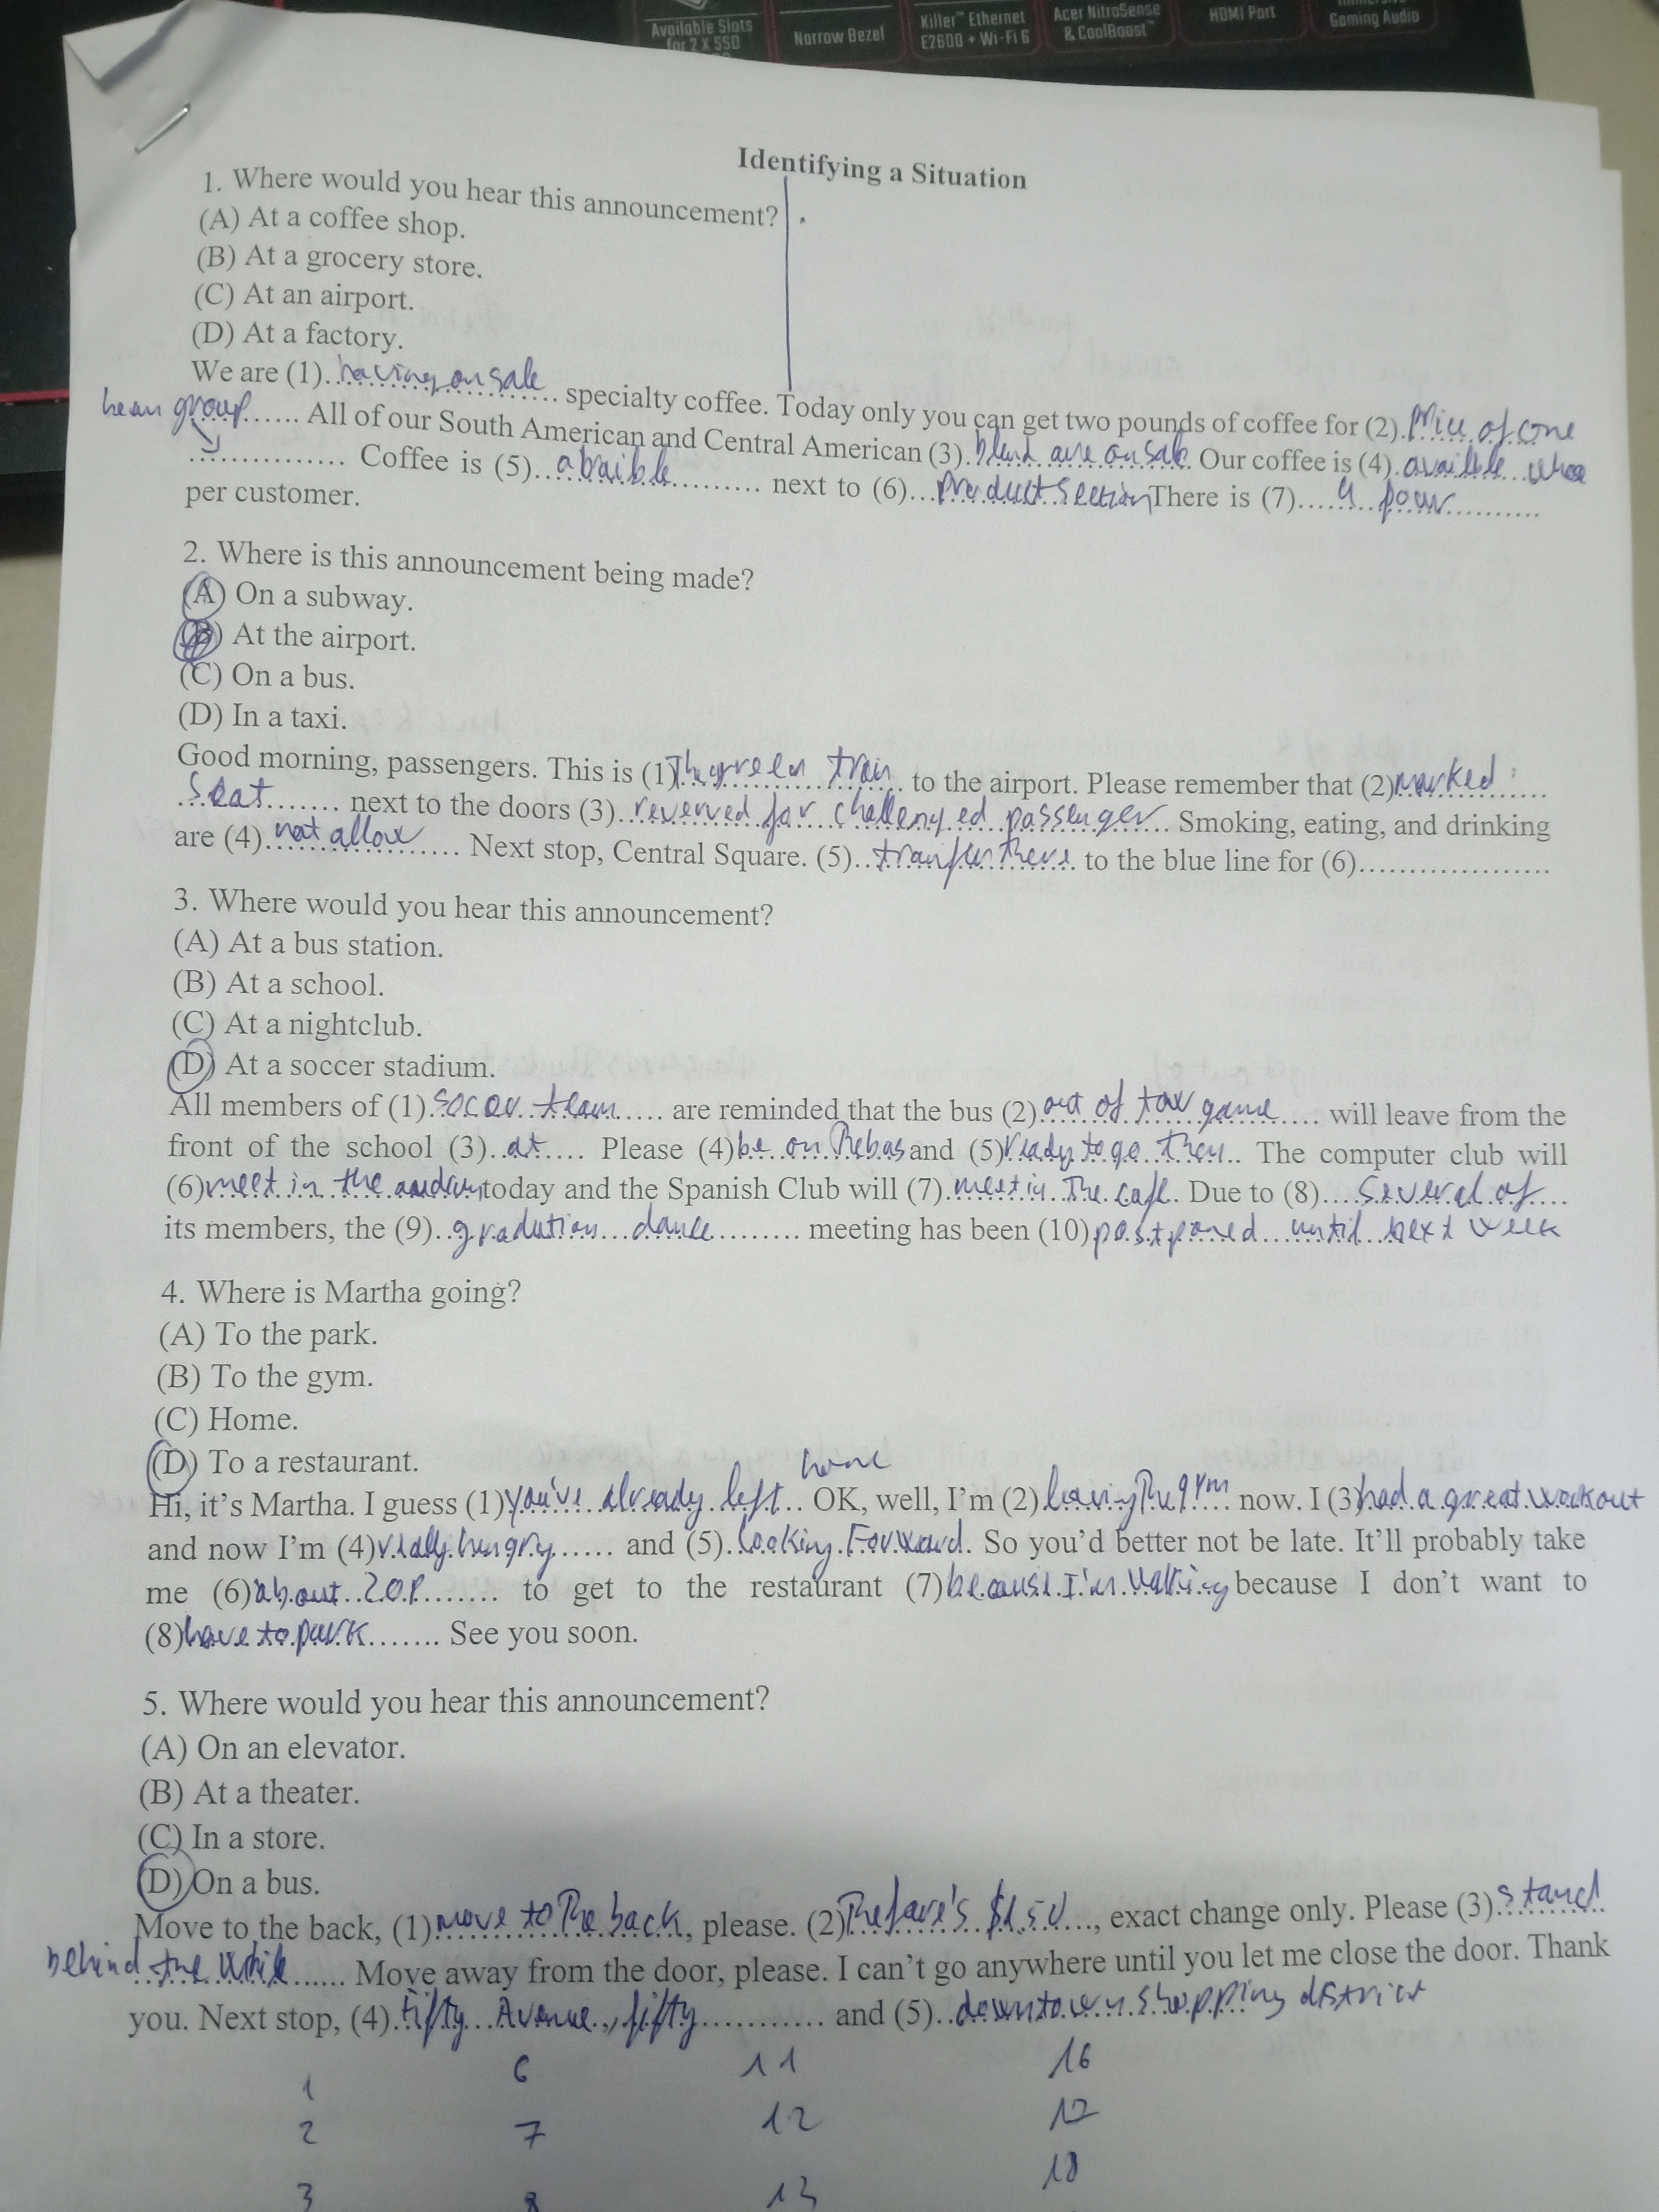 Available Slots
for 2 X SSD
Narrow Bezel
Killer™ Ethernet
E2600 + Wi-Fi 6
Acer NitroSense
& CoolBoost™
HDMI Port
Gaming Audio
Identifying a Situation
1. Where would you hear this announcement?
(A) At a coffee shop.
(B) At a grocery store.
(C) At an airport.
(D) At a factory.
We are (1) having on sale specialty coffee. Today only you can get two pounds of coffee for (2) price of one
All of our South American and Central American (3) blend are on sale. Our coffee is (4)
bean group Coffee is (5) next to (6) product section There is (7) 4
per customer.
2. Where is this announcement being made?
(A) On a subway.
(B) At the airport.
(C) On a bus.
(D) In a taxi.
Good morning, passengers. This is (1) green train to the airport. Please remember that (2) marked
seat next to the doors (3) reserved for challenged passenger. Smoking, eating, and drinking
are (4) not allow Next stop, Central Square. (5) to the blue line for (6)
3. Where would you hear this announcement?
(A) At a bus station.
(B) At a school.
(C) At a nightclub.
(D) At a soccer stadium.
All members of (1) team are reminded that the bus (2) out of tow game will leave from the
front of the school (3) at Please (4) be on the bus and (5) ready to go then. The computer club will
(6) meet in the today and the Spanish Club will (7) meet in the cafe. Due to (8) several of
its members, the (9) dance meeting has been (10) postponed until next week
4. Where is Martha going?
(A) To the park.
(B) To the gym.
(C) Home.
(D) To a restaurant.
home
Hi, it's Martha. I guess (1) you've already left OK, well, I'm (2) leaving the gym now. I (3) had a great workout
and now I'm (4) really hungry and (5) looking forward. So you'd better not be late. It'll probably take
me (6) about 20P to get to the restaurant (7) because I'm walking because I don't want to
(8) have to park See you soon.
5. Where would you hear this announcement?
(A) On an elevator.
(B) At a theater.
(C) In a store.
(D) On a bus.
Move to the back, (1) move to the back, please. (2) The fare's $1.50, exact change only. Please (3) stand
behind the Move away from the door, please. I can't go anywhere until you let me close the door. Thank
you. Next stop, (4) fifty Avenue, fifty and (5) downtown shopping district
1 6 11 16
2 7 12 17
3 8 13 18